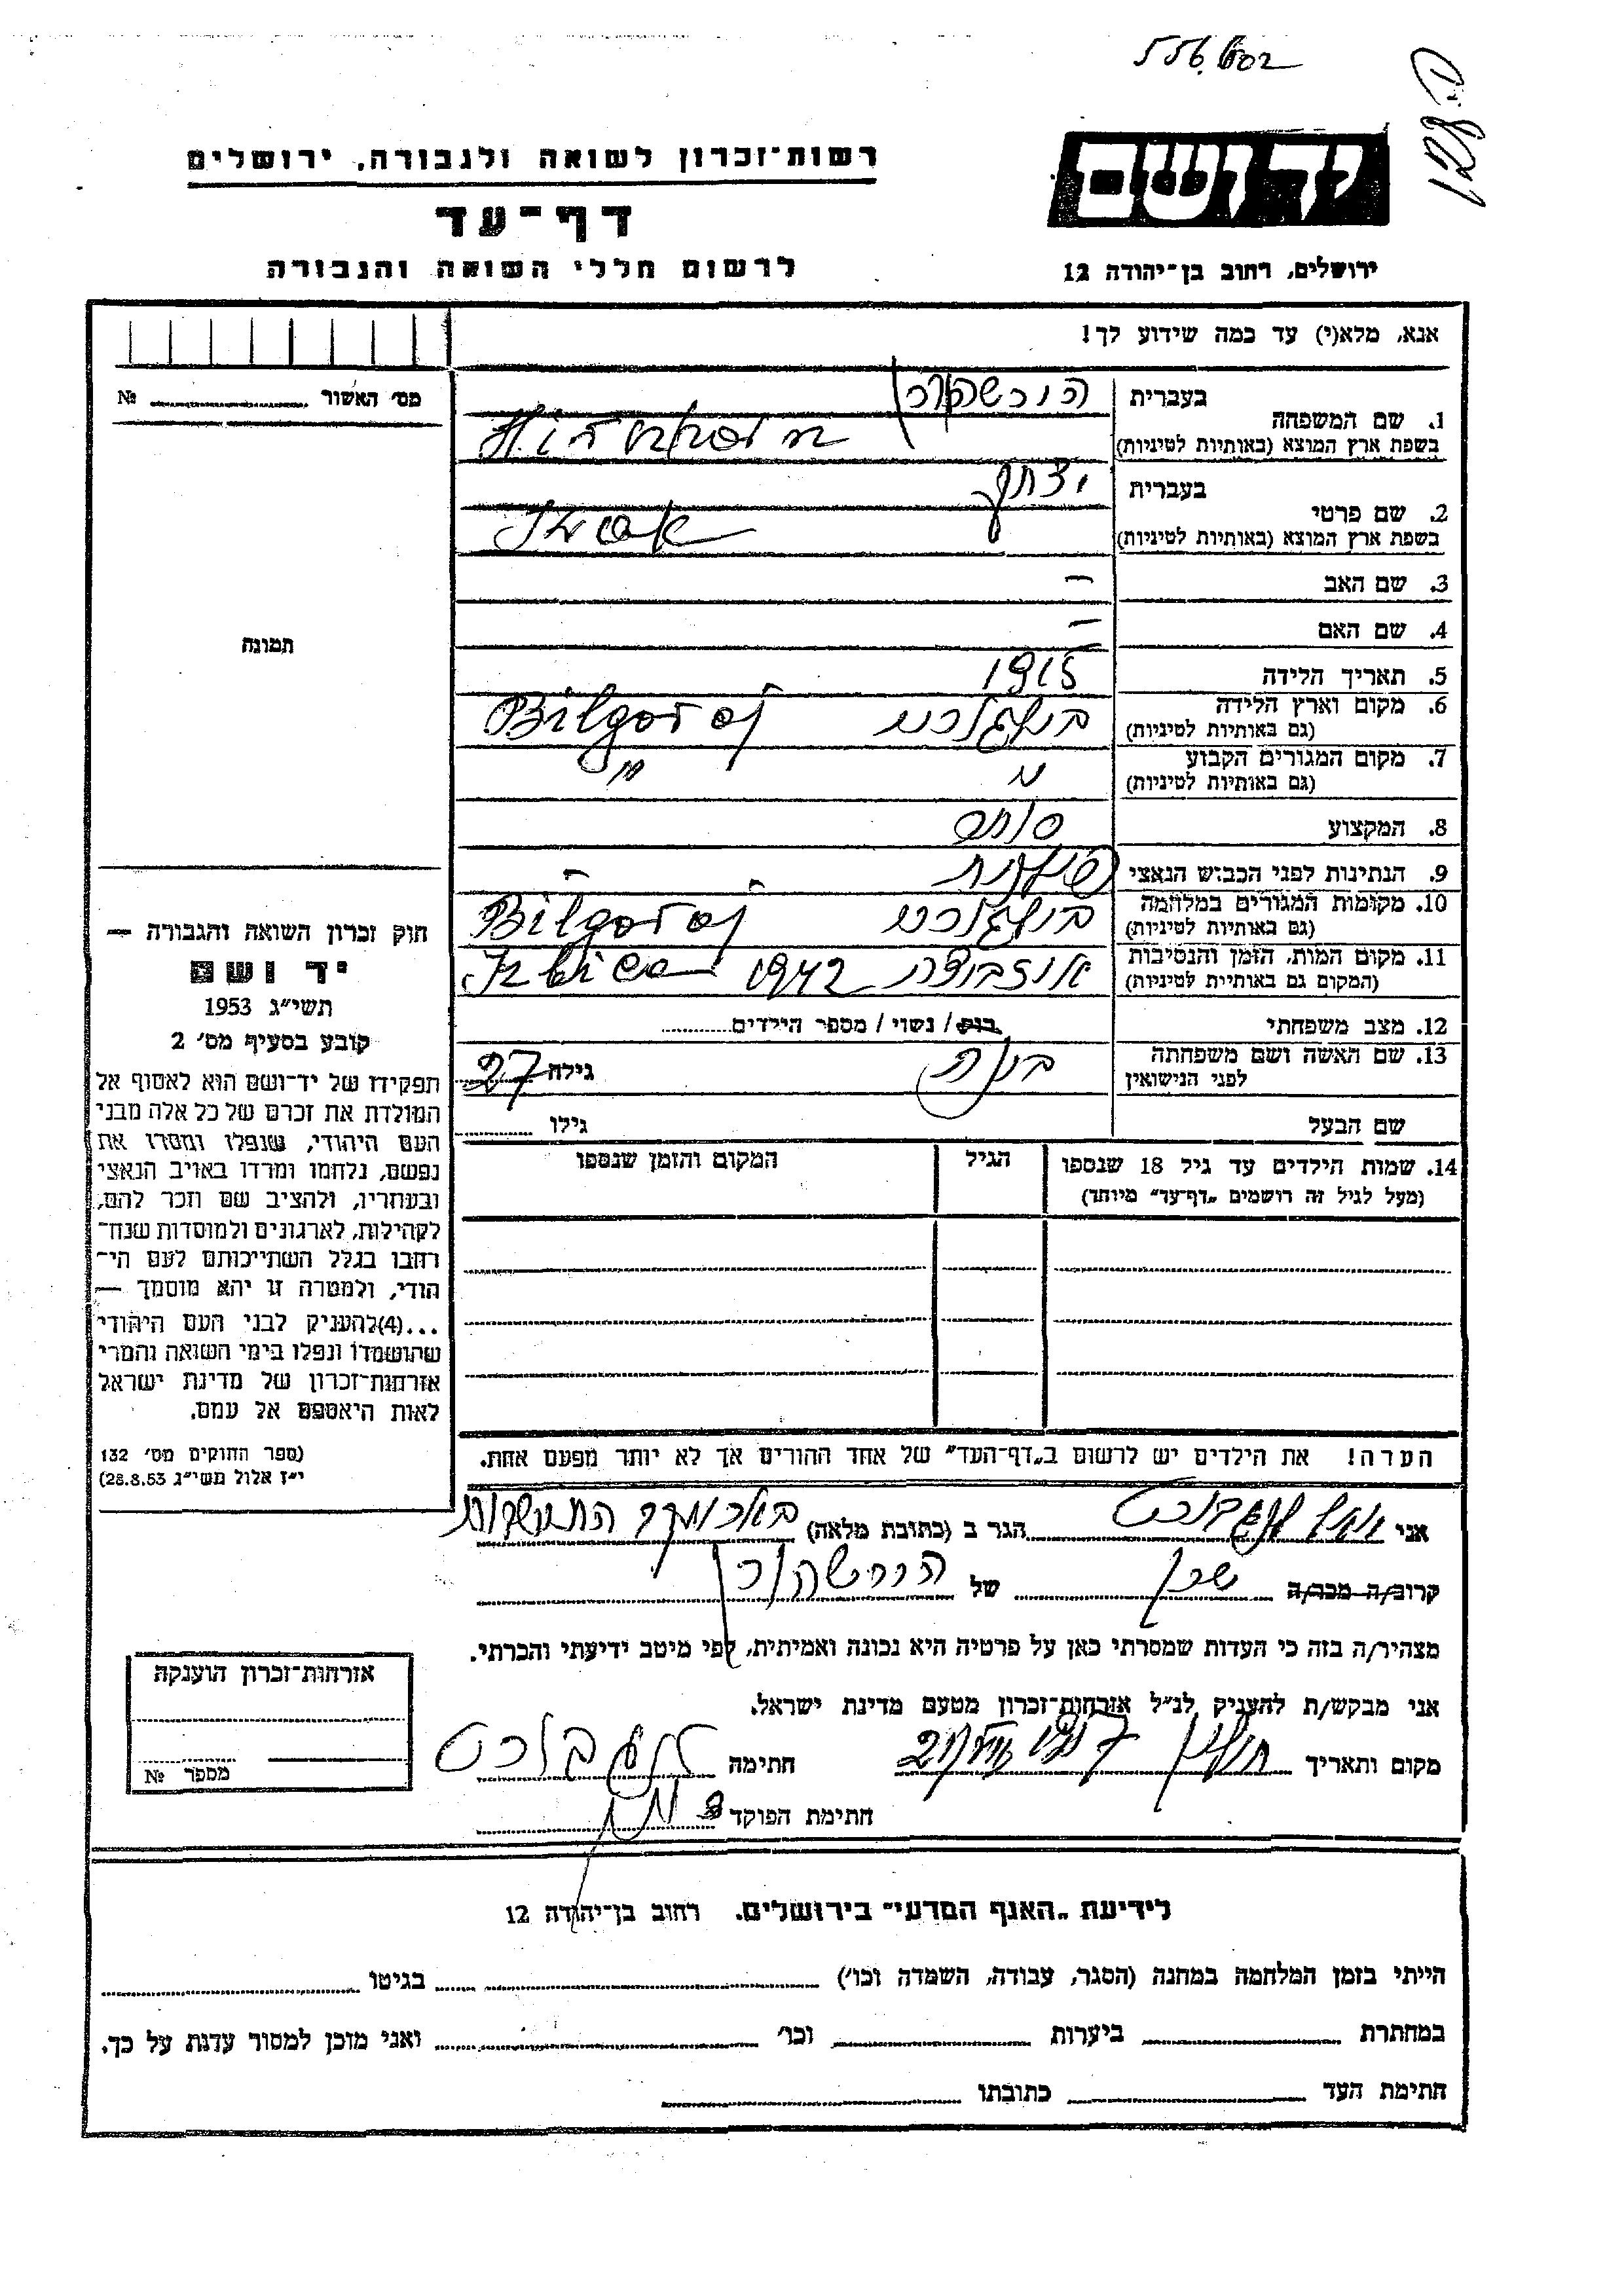 556602
128 D
רשות־זכרון לשואה ולגבורה, ירושלים
יד ושם
דף־עד
לרשום חללי השואה והגבורה
ירושלים, רחוב בן־יהודה 12
אנא, מלא(י) עד כמה שידוע לך!
מס׳ האשור № 
בעברית הירשהורן
1. שם המשפחה
בשפת ארץ המוצא (באותיות לטיניות) Hirszhorn
בעברית יצחק
2. שם פרטי
בשפת ארץ המוצא (באותיות לטיניות) Izak
3. שם האב –
4. שם האם –
תמונה
5. תאריך הלידה 1915
6. מקום וארץ הלידה
(גם באותיות לטיניות) בילגוריי Bilgoraj
7. מקום המגורים הקבוע
(גם באותיות לטיניות) " "
8. המקצוע סוחר
9. הנתינות לפני הכבוש הנאצי פולנית
10. מקומות המגורים במלחמה
(גם באותיות לטיניות) בילגוריי Bilgoraj
11. מקום המות, הזמן והנסיבות
(המקום גם באותיית לטיניות) איזביצה 1942 Izbica
12. מצב משפחתי רווק / נשוי / מספר הילדים
13. שם האשה ושם משפחתה
לפני הנישואין גילה 27
שם הבעל גילו
14. שמות הילדים עד גיל 18 שנספו הגיל המקום והזמן שנספו
(מעל לגיל זה רושמים „דף־עד״ מיוחד)
חוק זכרון השואה והגבורה —
יד ושם
תשי״ג 1953
קובע בסעיף מס׳ 2
תפקידו של יד־ושם הוא לאסוף אל
המולדת את זכרם של כל אלה מבני
העם היהודי, שנפלו ומסרו את
נפשם, נלחמו ומרדו באויב הנאצי
ובעוזריו, ולהציב שם וזכר להם,
לקהילות, לארגונים ולמוסדות שנח־
רחבו בגלל השתייכותם לעם הי־
הודי, ולמטרה זו יהא מוסמך —
...(4)להעניק לבני העם היהודי
שהושמדו ונפלו בימי השואה והמרי
אזרחות־זכרון של מדינת ישראל
לאות היאספם אל עמם.
(ספר החוקים מס׳ 132
י״ז אלול תשי״ג 28.8.53)
הערה! את הילדים יש לרשום ב„דף־העד״ של אחד ההורים אך לא יותר מפעם אחת.
אני הגר ב (כתובת מלאה)
קרוב/ה מכר/ה שכן של הירשהורן
מצהיר/ה בזה כי העדות שמסרתי כאן על פרטיה היא נכונה ואמיתית, לפי מיטב ידיעתי והכרתי.
אני מבקש/ת להעניק לנ״ל אזרחות־זכרון מטעם מדינת ישראל.
מקום ותאריך חולון חתימה
חתימת הפוקד
אזרחות־זכרון הוענקה
מספר №
לידיעת „האגף המדעי״ בירושלים. רחוב בן־יהודה 12
הייתי בזמן המלחמה במחנה (הסגר, עבודה, השמדה וכו׳) בגיטו
במחתרת ביערות וכו׳ ואני מוכן למסור עדות על כך.
חתימת העד כתובתו